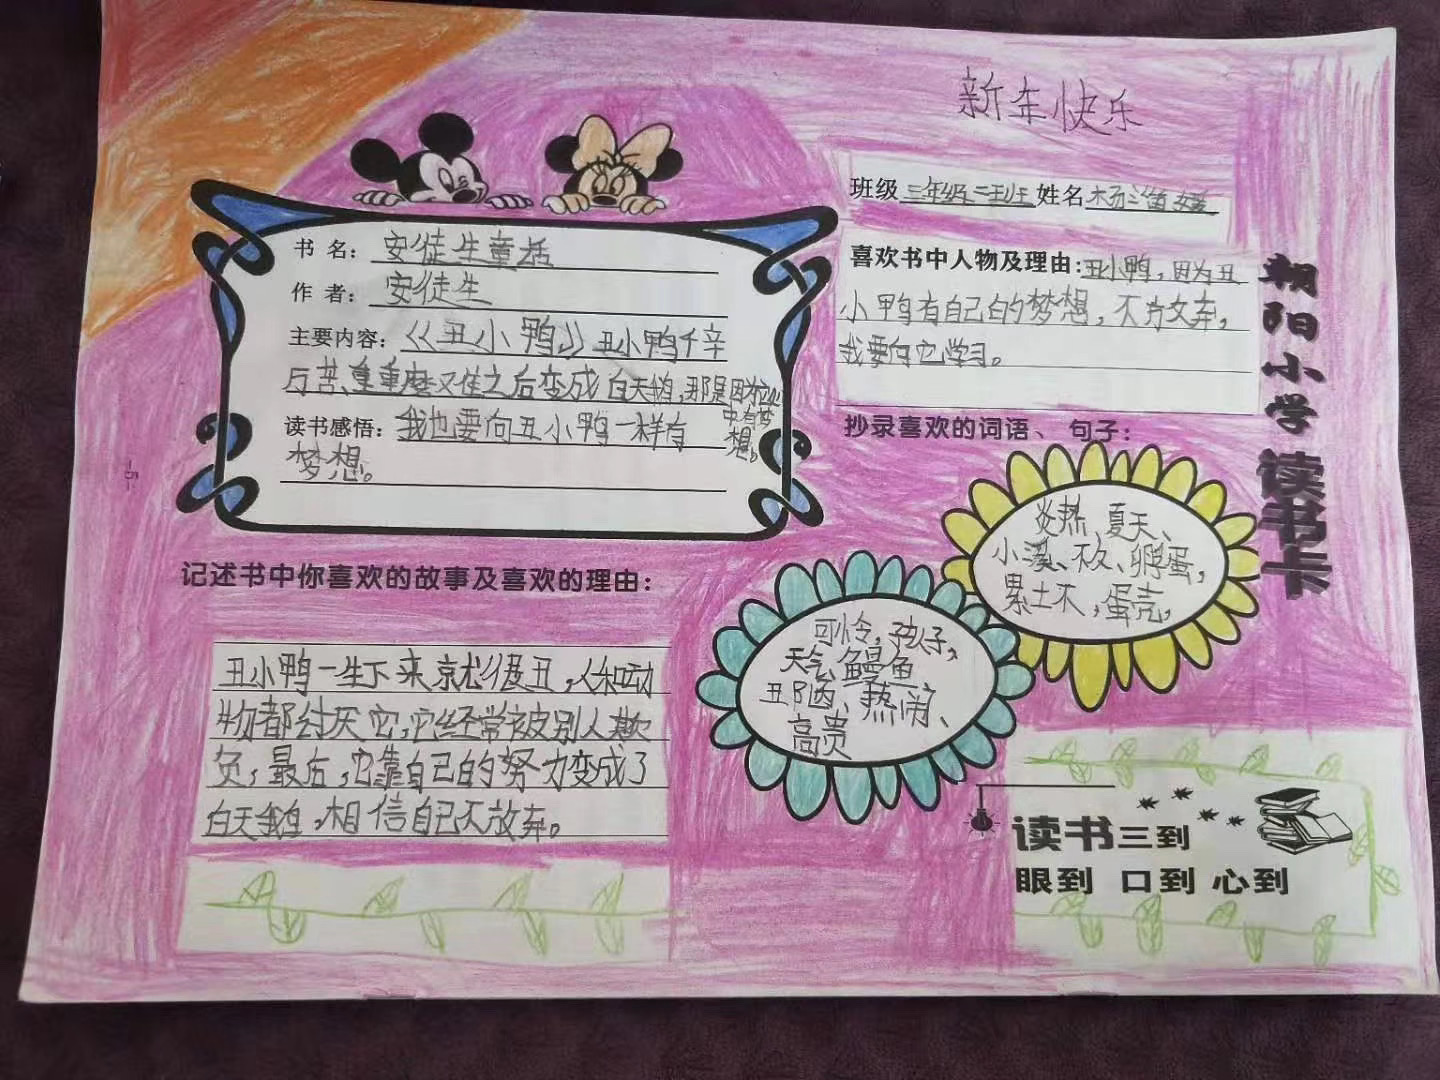 新年快乐
班级 三年级二班 姓名 杨
书 名：安徒生童话
作 者：安徒生
主要内容：《丑小鸭》丑小鸭千辛
万苦、重重磨又难之后变成白天鹅，那是因为心
中有梦
想。
读书感悟：我也要向丑小鸭一样有
梦想。
喜欢书中人物及理由：丑小鸭，因为丑
小鸭有自己的梦想，不放弃，
我要向它学习。
抄录喜欢的词语、句子：
炎热 夏天、
小溪、孵蛋，
累土木，蛋壳，
可怜，孩子，
天气、鳗鱼
丑陋、热闹、
高贵
朝阳小学读书卡
记述书中你喜欢的故事及喜欢的理由：
丑小鸭一生下来就很丑，人和动
物都讨厌它，它经常被别人欺
负，最后，它靠自己的努力变成了
白天鹅，相信自己不放弃。
读书三到
眼到 口到 心到